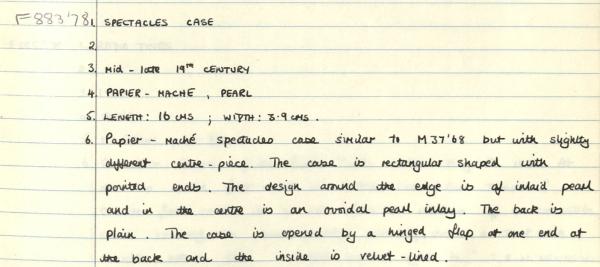 F883'78 1. SPECTACLES CASE
2.
3. Mid - late 19TH CENTURY
4. PAPIER - MACHÉ , PEARL
5. LENGTH : 16 CMS ; WIDTH : 3.9 CMS .
6. Papier - Maché spectacles case similar to M37'68 but with slightly
different centre - piece. The case is rectangular shaped with
pointed ends. The design around the edge is of inlaid pearl
and in the centre is an ovoidal pearl inlay. The back is
plain. The case is opened by a hinged flap at one end at
the back and the inside is velvet - lined.